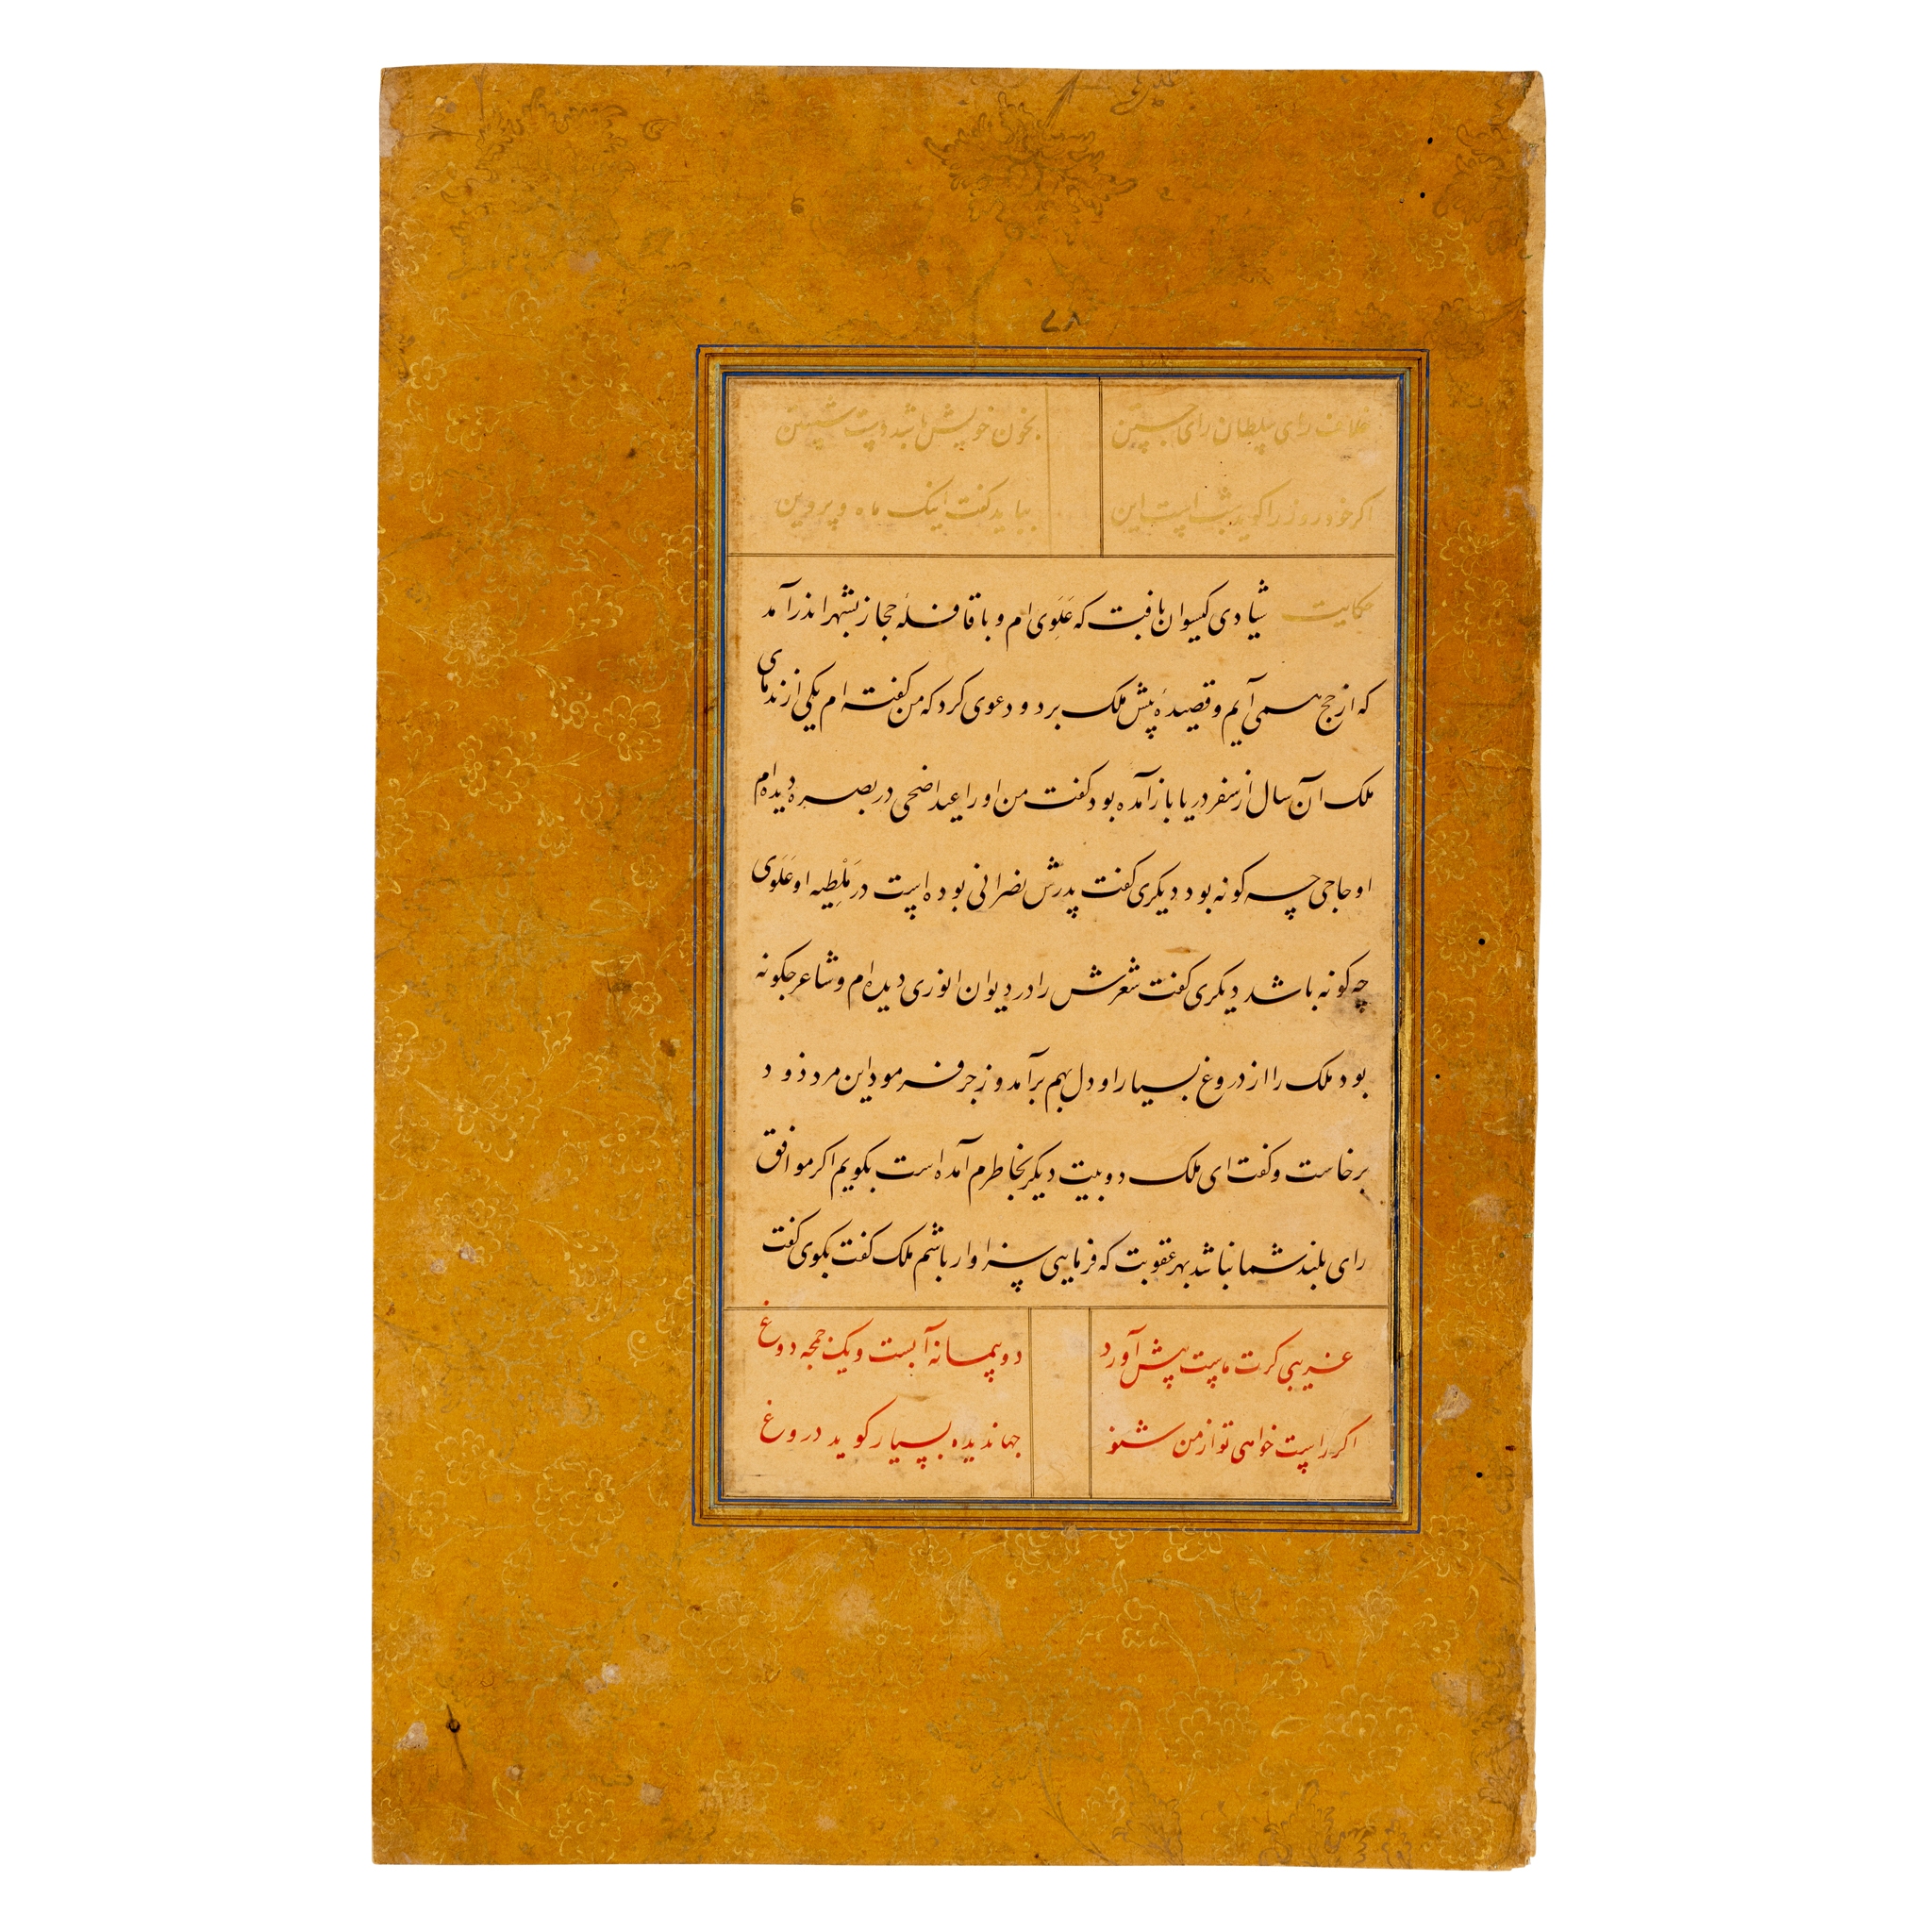 ۷۸
خلاف رای سلطان رای جستن بخون خویش باشد دست شستن
اکر خود روز را کوید شب است این بباید کفت اینک ماه و پروین
حکایت شیادی کیسوان بافت که عَلَوِی ام و با قافلهٔ حجاز بشهر اندر آمد
که از حج همی آیم و قصیدهٔ پیش ملک برد و دعوی کرد که من کفته ام یکی از ندمای
ملک آن سال از سفر دریا باز آمده بود کفت من او را عید اضحی در بصره دیده ام
او حاجی چه کونه بود دیکری کفت پدرش نصرانی بوده است در مَلْطِیه او عَلَوی
چه کونه باشد دیکری کفت شعرش را در دیوان انوری دیده ام و شاعر جکونه
بود ملک را از دروغ بسیار او دل بهم برآمد و زجر فرمود این مرد زود
برخاست و کفت ای ملک دو بیت دیکر بخاطرم آمده است بکویم اکر موافق
رای بلند شما نباشد بهر عقوبت که فرمایی سزاوار باشم ملک کفت بکوی کفت
غریبی کرت ماست پیش آورد دو پیمانه آبست و یک چمچه دوغ
اکر راست خواهی تو از من شنو جهاندیده بسیار کوید دروغ